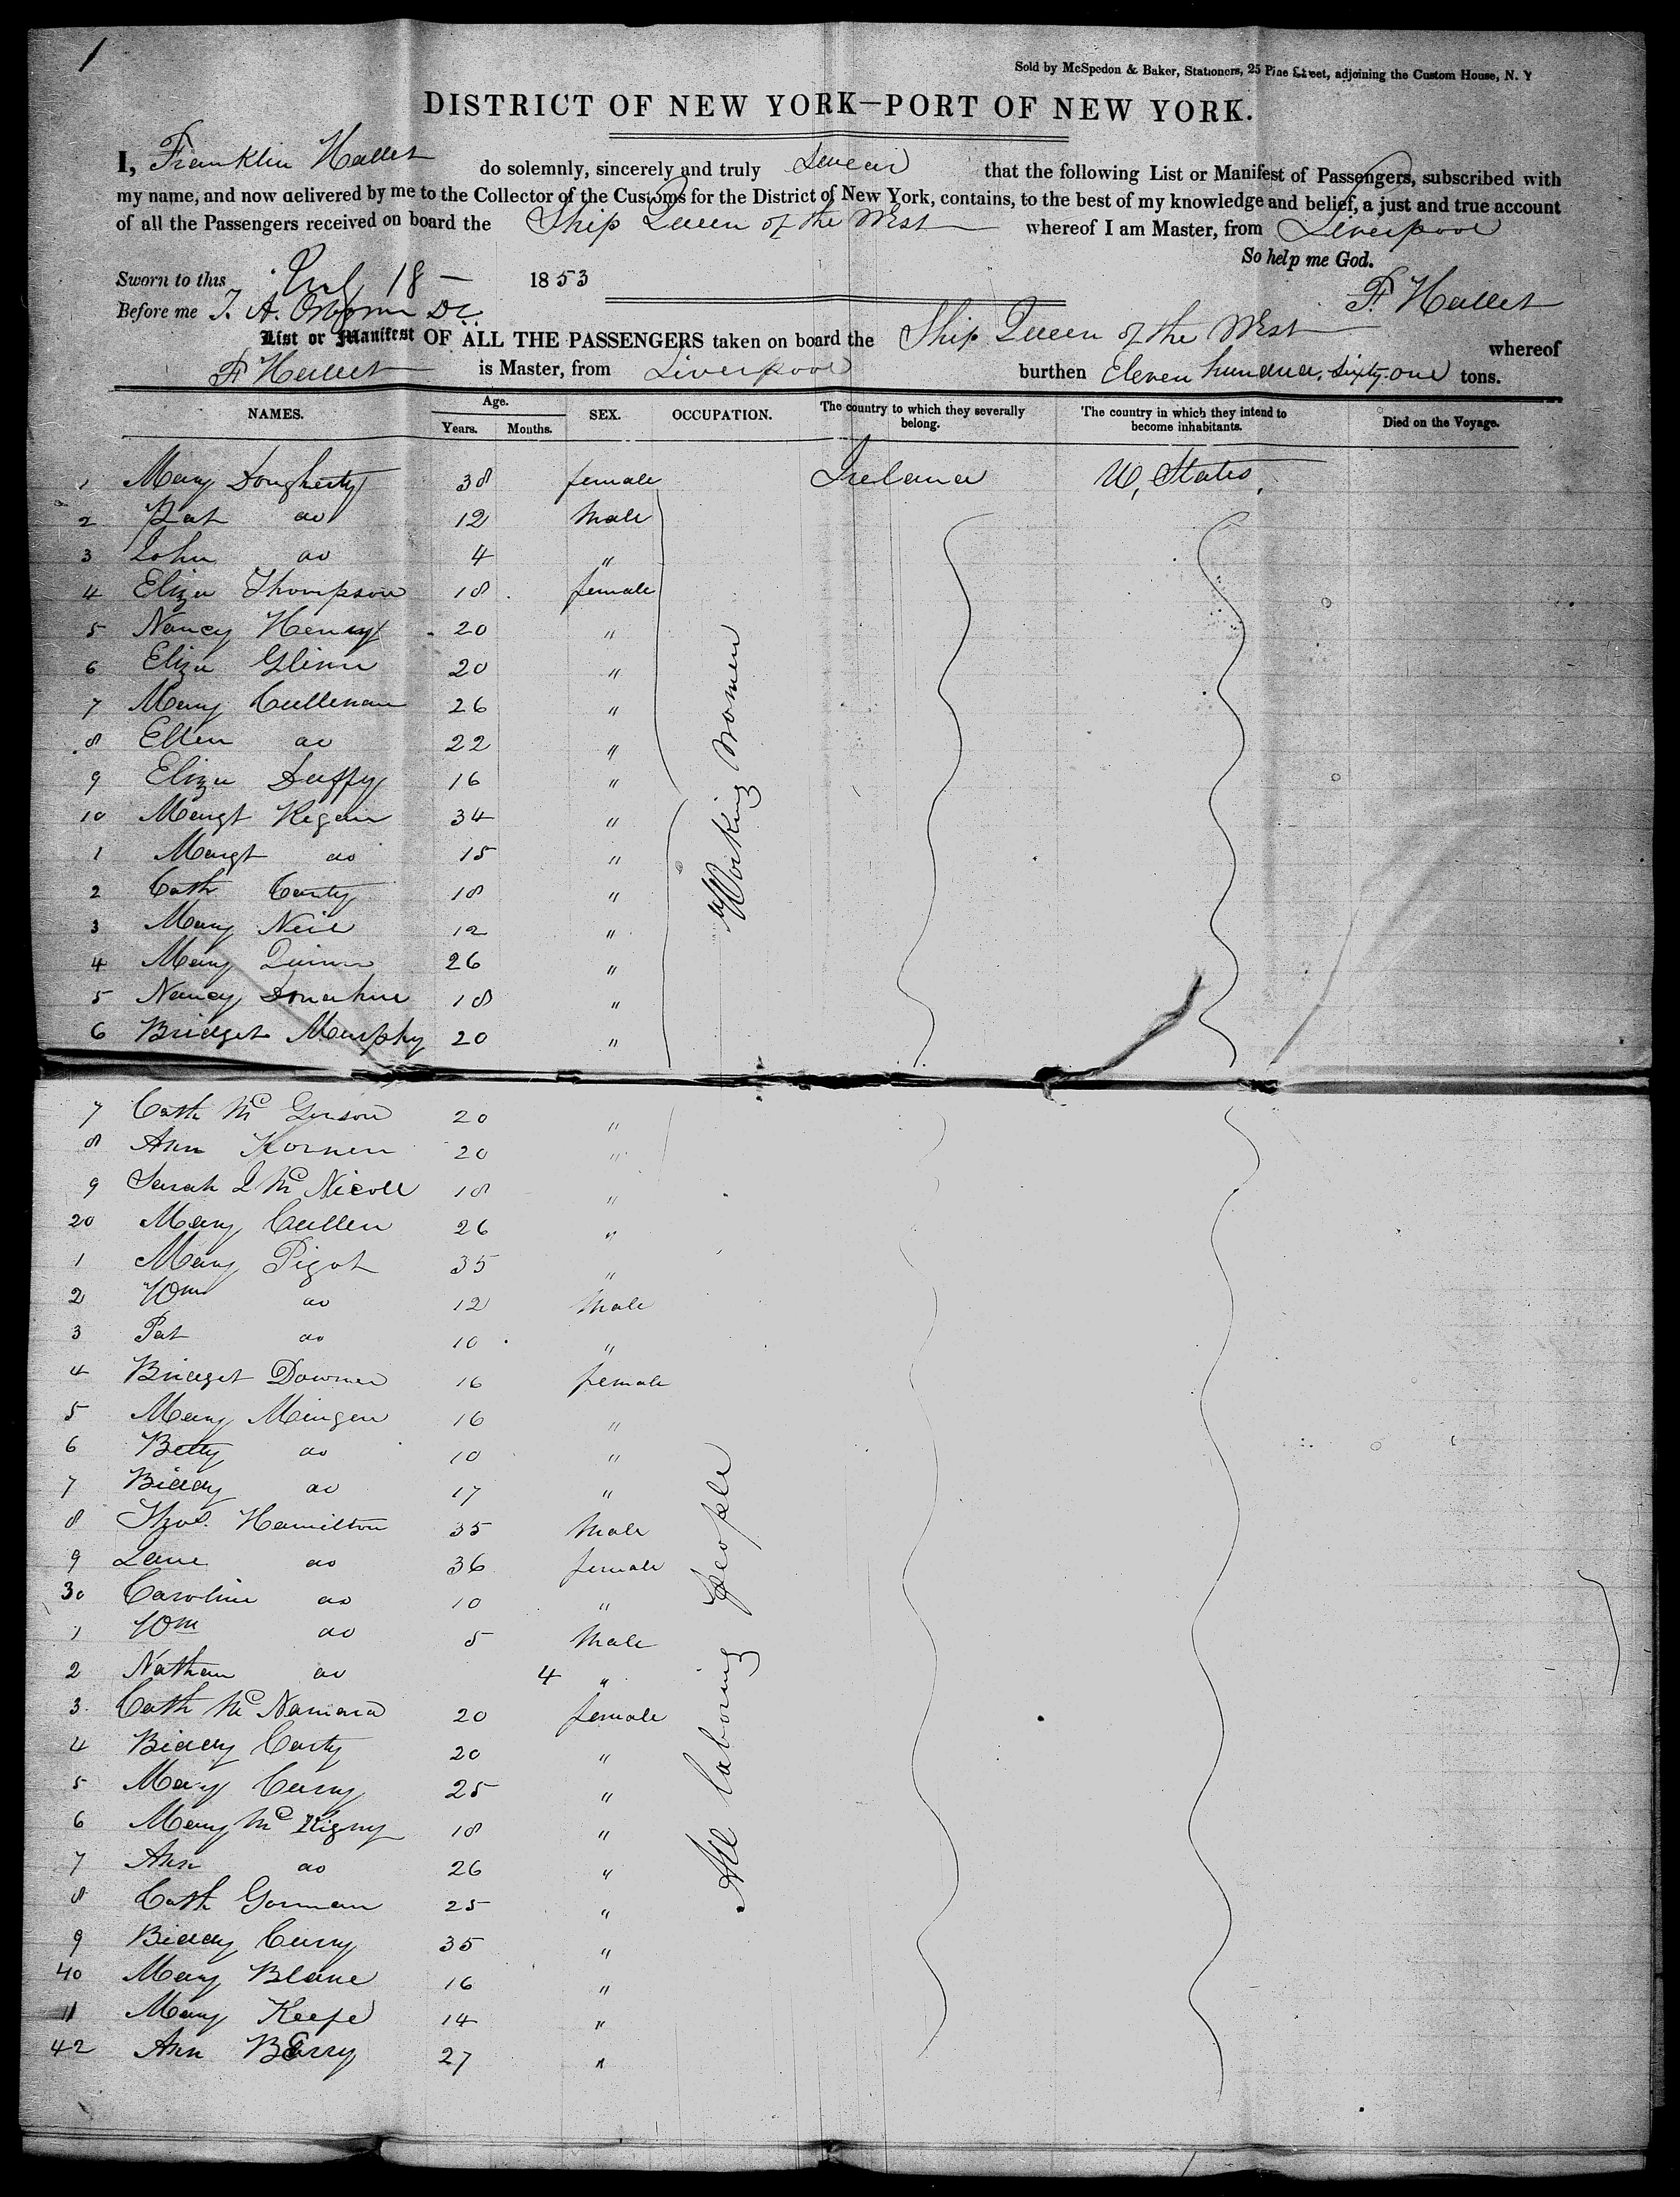 1
Sold by McSpedon & Baker, Stationers, 25 Pine Street, adjoining the Custom House, N. Y
DISTRICT OF NEW YORK—PORT OF NEW YORK.
I, Franklin Hallet do solemnly, sincerely and truly Swear that the following List or Manifest of Passengers, subscribed with
my name, and now delivered by me to the Collector of the Customs for the District of New York, contains, to the best of my knowledge and belief, a just and true account
of all the Passengers received on board the Ship Queen of the West whereof I am Master, from Liverpool
So help me God.
Sworn to this 18 — 1853
F. Hallet
Before me T. A. Osborn DC.
List or Manifest OF ALL THE PASSENGERS taken on board the Ship Queen of the West whereof
F Hallet is Master, from Liverpool burthen Eleven hundred, Sixty-one tons.
NAMES. Age. SEX. OCCUPATION. The country to which they severally belong. The country in which they intend to become inhabitants. Died on the Voyage.
Years. Months.
1 Mary Dougherty 38 female Ireland U, States,
2 Pat do 12 Male
3 John do 4 "
4 Eliza Thompson 18 female
5 Nancy Henry 20 "
6 Eliza Glinn 20 "
7 Mary Cullenan 26 "
8 Ellen do 22 "
9 Eliza Duffy 16 "
10 Margt Regan 34 "
1 Margt do 15 "
2 Cath Canty 18 "
3 Mary Neil 12 "
4 Mary Quinn 26 "
5 Nancy Donahue 18 "
6 Bridget Murphy 20 "
Working Women
7 Cath Mc 20 "
8 Ann Kornen 20 "
9 Sarah J Mc Nicoll 18 "
20 Mary Cullen 26 "
1 Mary Pigot 35 "
2 Wm do 12 Male
3 Pat do 10 "
4 Bridget Downer 16 female
5 Mary Mingen 16 "
6 Betty do 10 "
7 Biddy do 17 "
8 Thos. Hamilton 35 Male
9 Jane do 36 female
30 Caroline do 10 "
1 Wm do 5 Male
2 Nathan do 4 "
3. Cath Mc Namara 20 female
4 Biddy Carty 20 "
5 Mary Curry 25 "
6 Mary Mc 18 "
7 Ann do 26 "
8 Cath Gorman 25 "
9 Biddy Curry 35 "
40 Mary Blane 16 "
11 Mary Keefe 14 "
42 Ann Barry 27 "
All laboring people